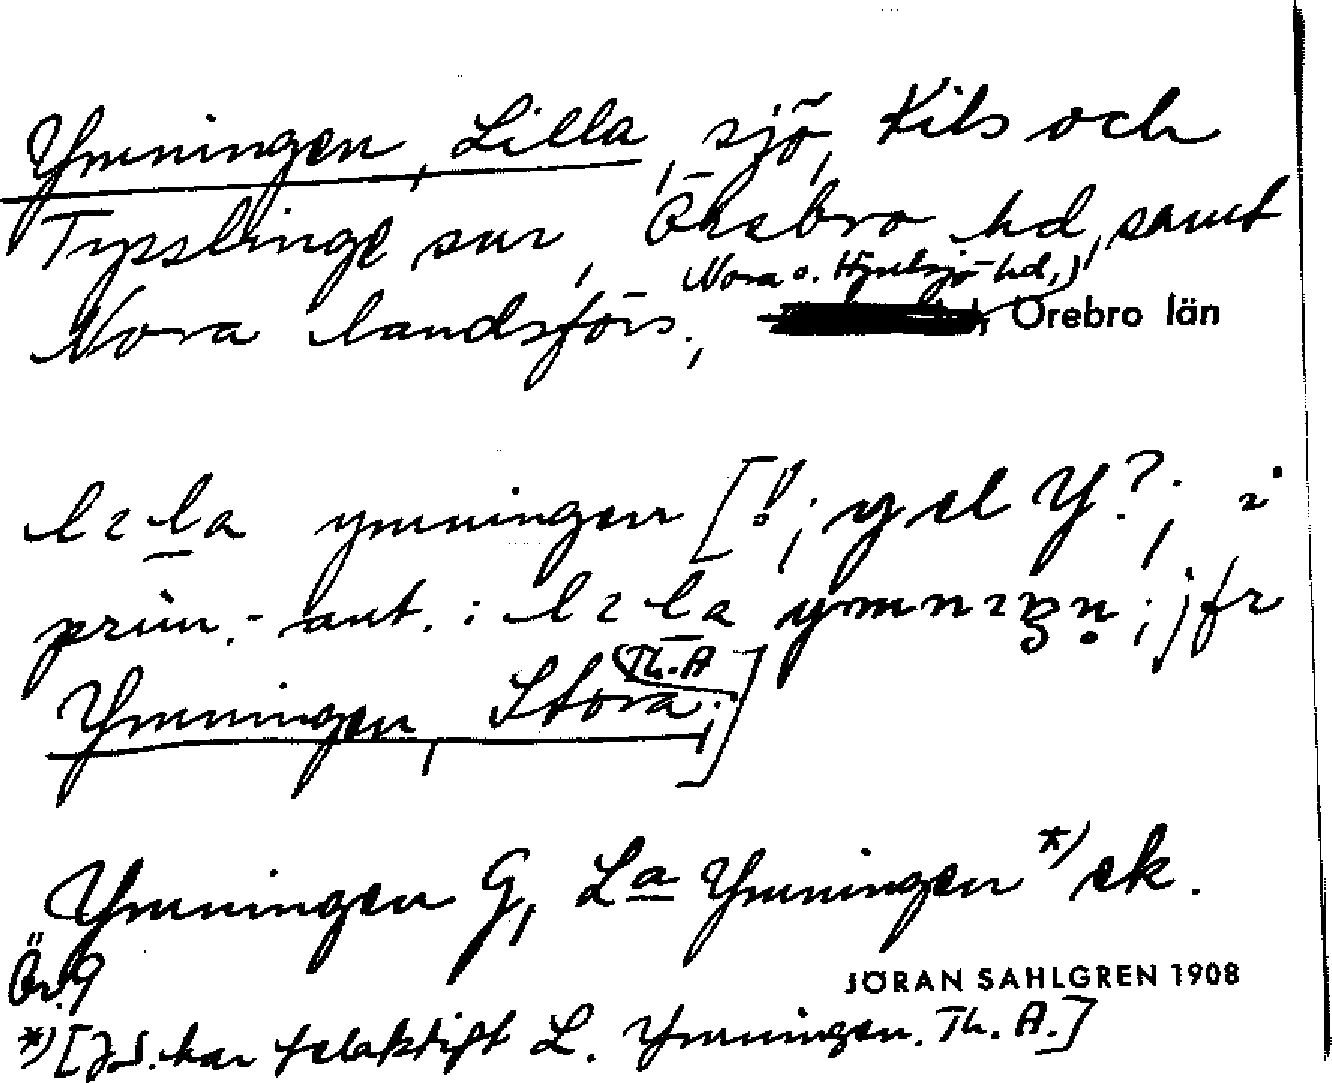 Ymningen, Lilla, sjö, Kils och
Tysslinge snr, Örebro hd, samt
Nora o. Hjulsjö hd,)
Nora landsförs., Örebro län
lɪla ymningen [!; y el Y?; i
prim.-ant.: lɪla ymnɪŋn; jfr
Ymningen, Stora; Th.A]
Ymningen G, La Ymningen *) ek.
Ör.9
JÖRAN SAHLGREN 1908
*) [J.S. har felaktigt L. Ymningen. Th. A.]